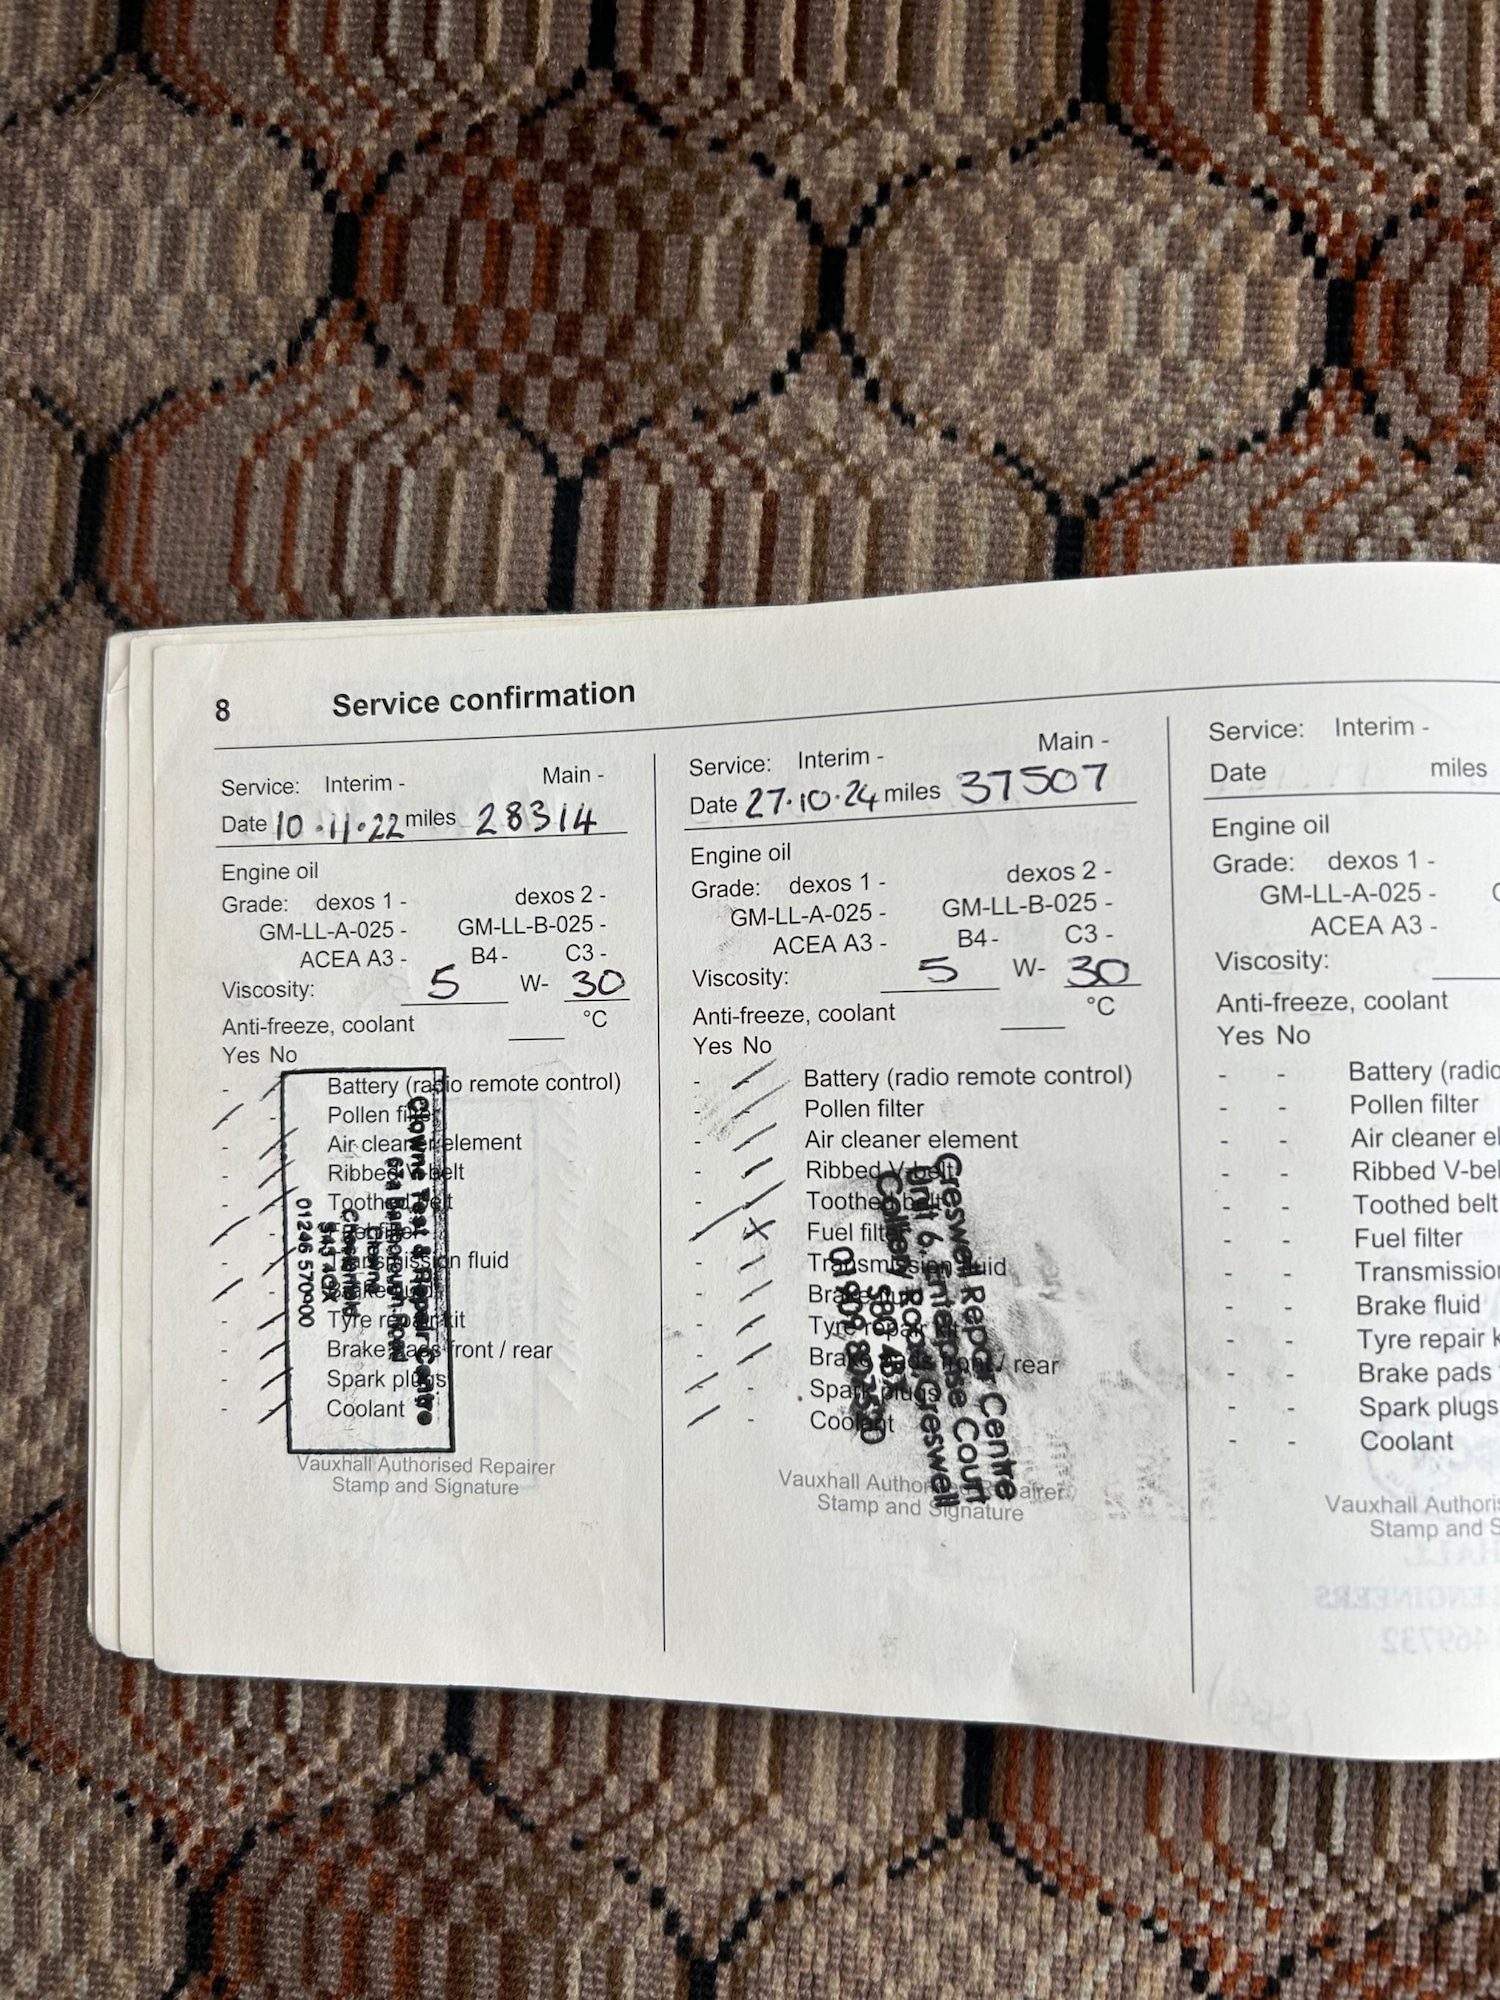 8 Service confirmation
Service: Interim - Main -
Date 10.11.22 miles 28314
Engine oil
Grade: dexos 1 - dexos 2 -
GM-LL-A-025 - GM-LL-B-025 -
ACEA A3 - B4 - C3 -
Viscosity: 5 W- 30
Anti-freeze, coolant °C
Yes No
- Battery (radio remote control)
Pollen filter
- Air cleaner element
- Ribbed V-belt
- Toothed belt
Fuel filter
- Transmission fluid
Brake fluid
- Tyre repair kit
- Brake pads front / rear
- Spark plugs
- Coolant
Clowne Test & Repair Centre
Clowne
Chesterfield
S43 4GX
01246 570900
Vauxhall Authorised Repairer
Stamp and Signature
Service: Interim - Main -
Date 27.10.24 miles 37507
Engine oil
Grade: dexos 1 - dexos 2 -
GM-LL-A-025 - GM-LL-B-025 -
ACEA A3 - B4 - C3 -
Viscosity: 5 W- 30
Anti-freeze, coolant °C
Yes No
- Battery (radio remote control)
- Pollen filter
- Air cleaner element
- Ribbed V-belt
- Toothed belt
Fuel filter
- Transmission fluid
- Brake fluid
- Tyre repair kit
- Brake pads front / rear
- Spark plugs
- Coolant
Creswell Repair Centre
Unit 6, Enterprise Court
Colliery Road, Creswell
S80
01909
Vauxhall Authorised Repairer
Stamp and Signature
Service: Interim -
Date miles
Engine oil
Grade: dexos 1 -
GM-LL-A-025 -
ACEA A3 -
Viscosity:
Anti-freeze, coolant
Yes No
- - Battery (radio
- - Pollen filter
- - Air cleaner el
- - Ribbed V-bel
- - Toothed belt
- - Fuel filter
- - Transmission
- - Brake fluid
- - Tyre repair k
- - Brake pads
- - Spark plugs
- - Coolant
Vauxhall Authoris
Stamp and S